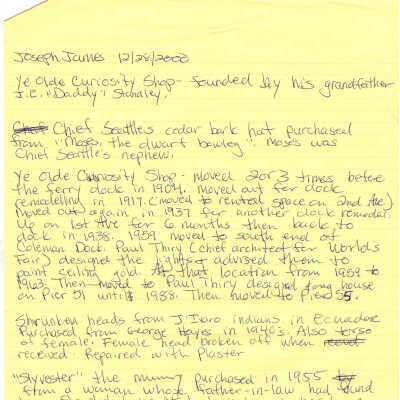 Joseph James 12/28/2000
Ye Olde Curiosity Shop - founded by his grandfather
J.E. "Daddy" Standley.
Chief Seattle's cedar bark hat purchased
from "Moses, the dwarf bowleg". Moses was
Chief Seattle's nephew.
Ye Olde Curiosity Shop - moved 2 or 3 times before
the ferry dock in 1904. moved out for dock
remodeling in 1917. (moved to rental space on 2nd Ave)
moved out again in 1937 for another dock remodel.
Up on 1st Ave for 6 months then back to
dock in 1938. 1959 moved to south end of
Coleman Dock. Paul Thiry (chief architect for World's
Fair) designed the lights & advised them to
paint ceiling gold. At that location from 1959 to
1963. Then moved to Paul Thiry designed long house
on Pier 51 until 1988. Then moved to Pier 55.
Shrunken heads from Jivaro indians in Ecuador
Purchased from George Hayes in 1940's. Also torso
of female. Female head broken off when
received. Repaired with Plaster
"Slyvester" the mummy purchased in 1955
from a woman whose father-in-law had found